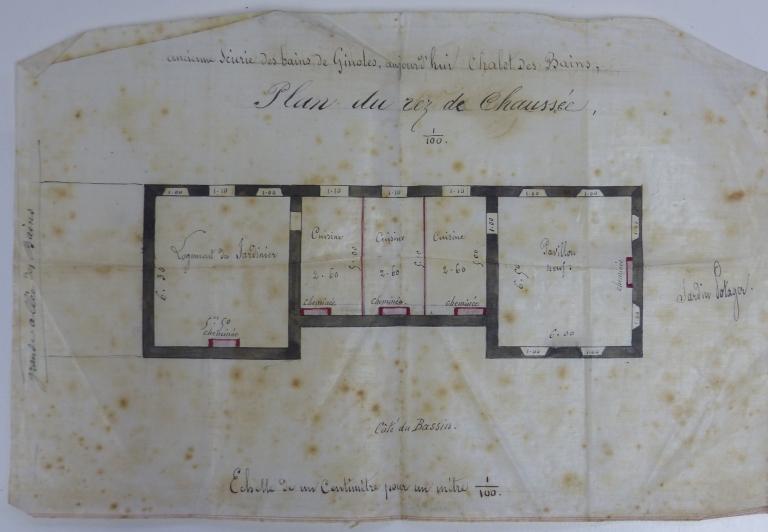 ancienne Scierie des bains de Ginoles, aujourd'hui Chalet des Bains,
Plan du rez de Chaussée,
1/100.
1.00
1.10
1.00
1.10
1.10
1.10
1.00
1.00
Logement du Jardinier
6.30
5m.50
cheminée
Cuisine
2.60
5.00
cheminée
Cuisine
2.60
cheminée
Cuisine
2.60
5.00
cheminée
1.00
Pavillon
neuf.
6.50
6.00
cheminée
1.00
1.00
1.00
1.00
Jardin Potager.
grande allée des Bains
Côté du Bassin.
Echelle de un Centimètre pour un mètre 1/100.